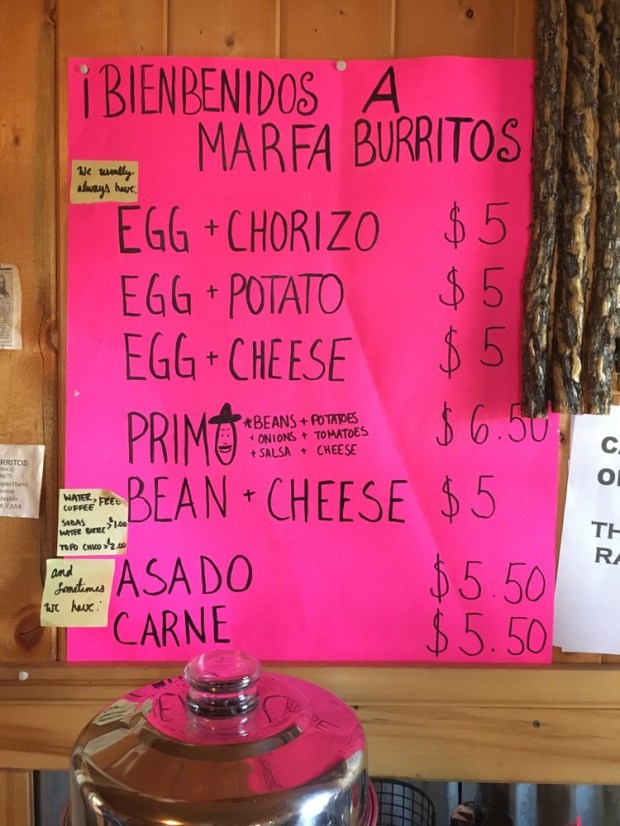 ¡BIENBENIDOS A
MARFA BURRITOS
We usually
always have:
EGG + CHORIZO $5
EGG + POTATO $5
EGG + CHEESE $5
PRIMO *BEANS + POTATOES $6.50
+ ONIONS + TOMATOES
+ SALSA + CHEESE
BEAN + CHEESE $5
WATER, FREE
COFFEE
SODAS $1.00
WATER BOTTLE
TOPO CHICO $2.00
and
Sometimes
we have:
ASADO $5.50
CARNE $5.50
RRITOS